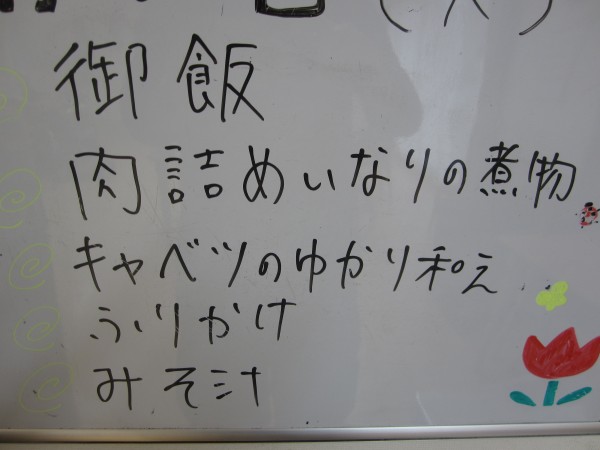 御飯
肉詰めいなりの煮物
キャベツのゆかり和え
ふりかけ
みそ汁